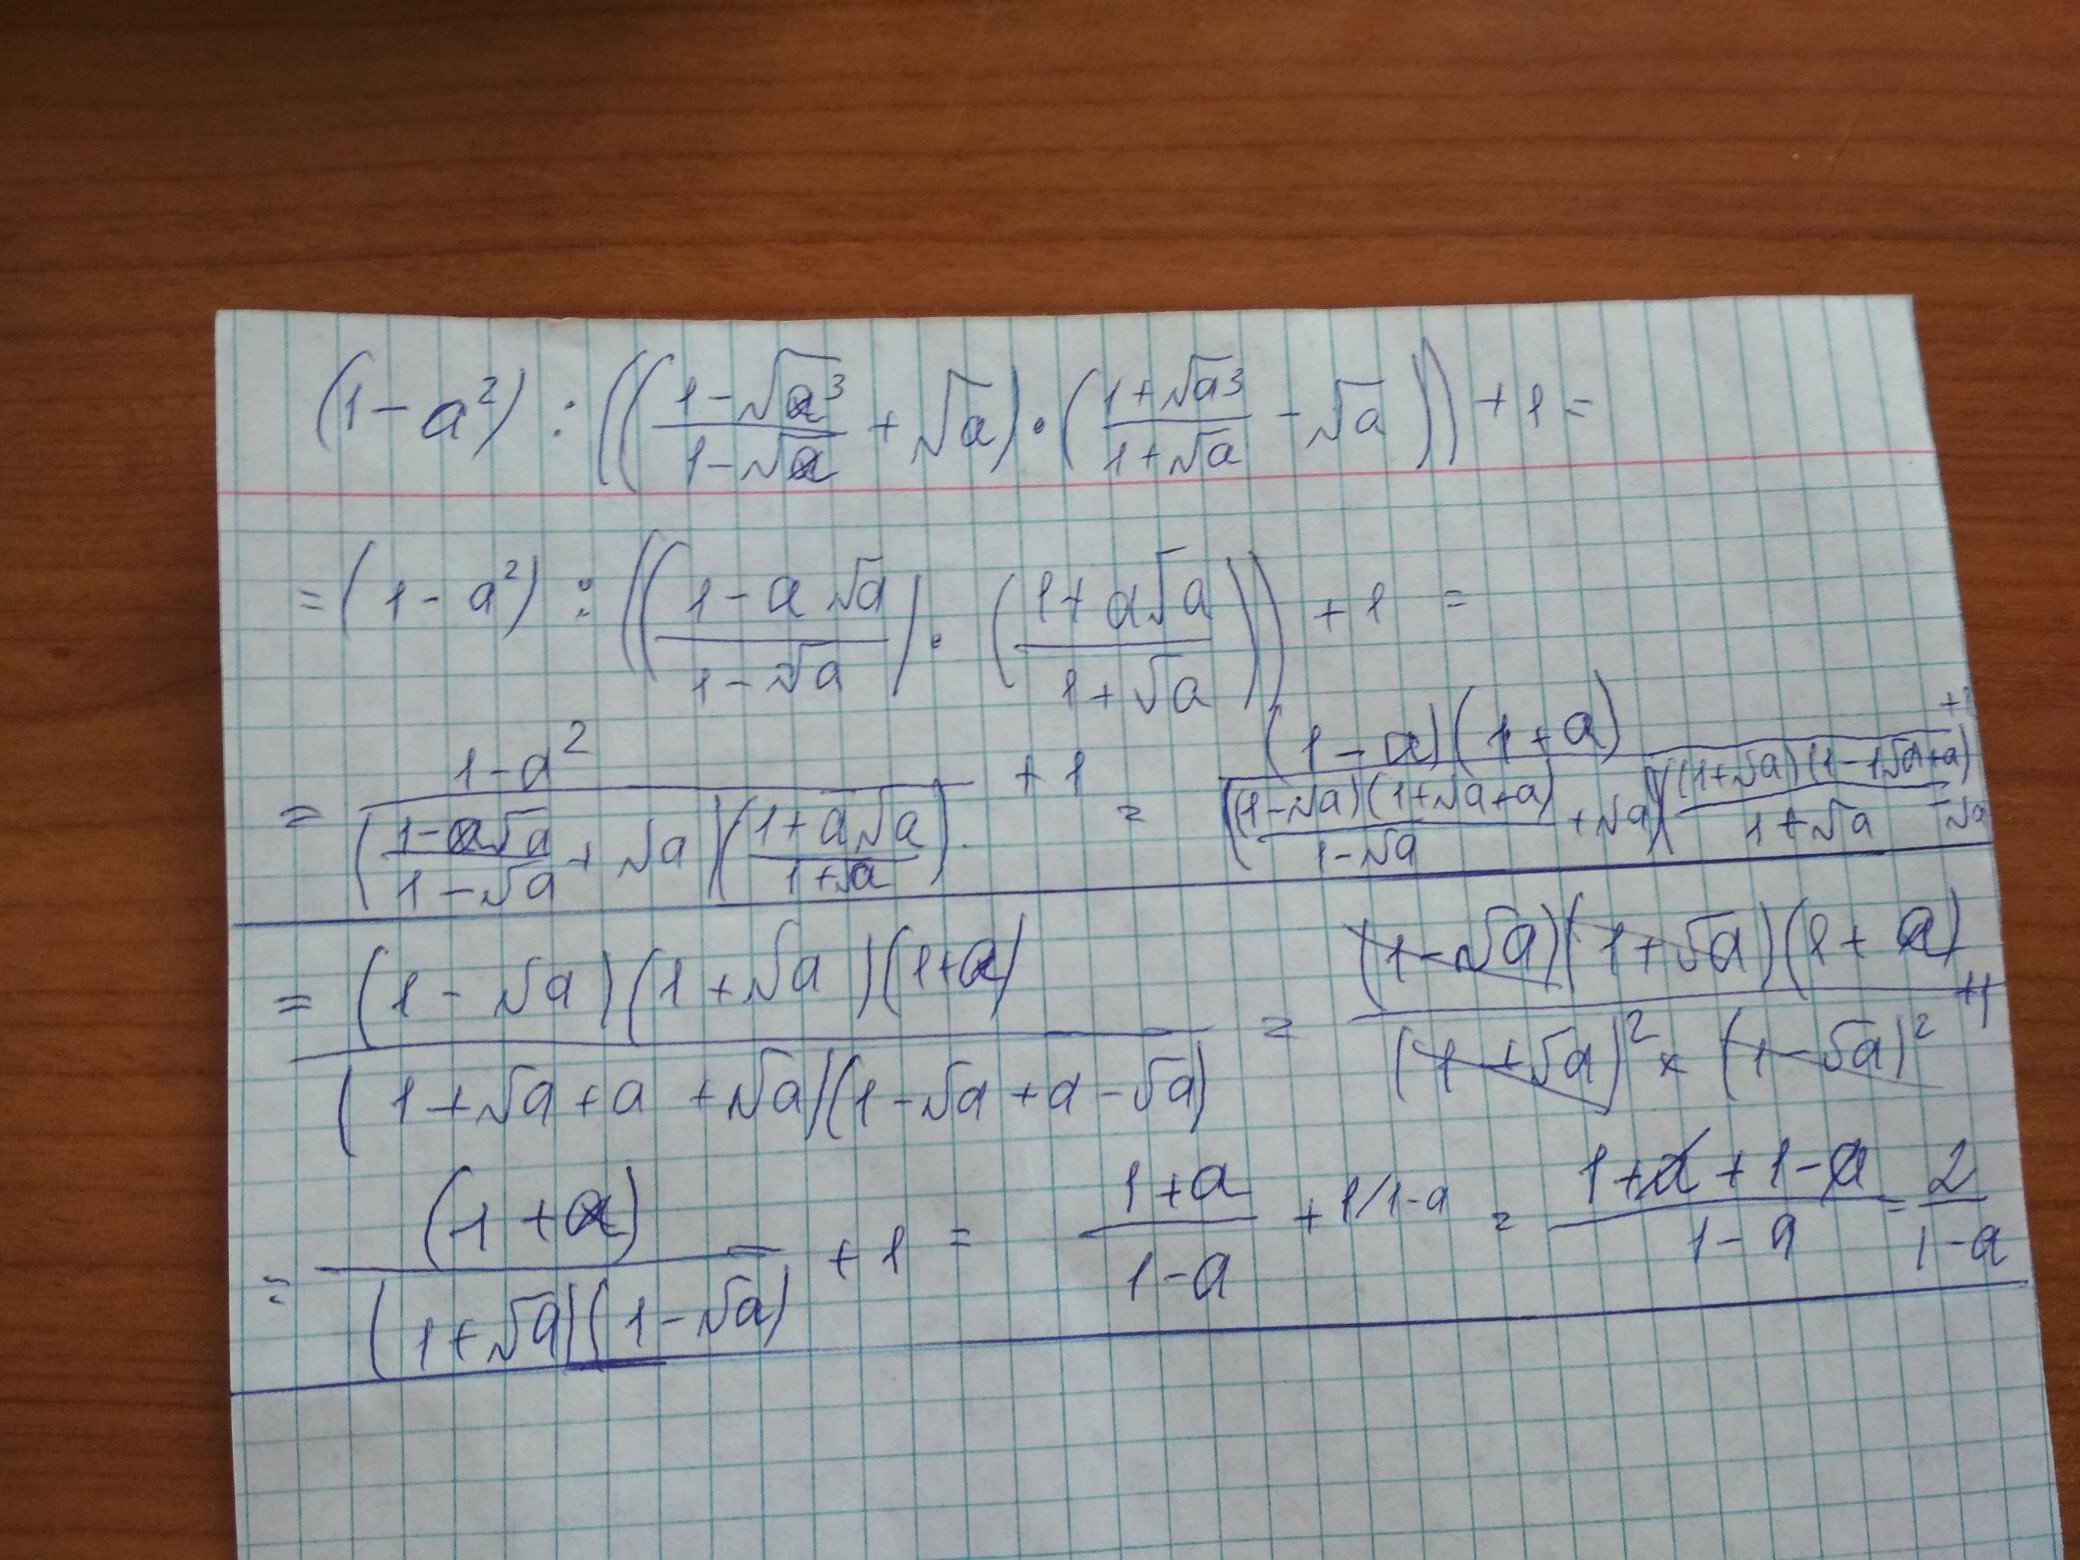 (1 - a²) : ((1 - √a³ / 1 - √a + √a) · (1 + √a³ / 1 + √a - √a)) + 1 =
= (1 - a²) : ((1 - a√a / 1 - √a) · (1 + a√a / 1 + √a)) + 1 =
= 1 - a² / (1 - a√a / 1 - √a + √a)(1 + a√a / 1 + √a) + 1 = (1 - a)(1 + a) / ((1 - √a)(1 + √a + a) / 1 - √a + √a)((1 + √a)(1 - 1√a + a) / 1 + √a - √a) +1
= (1 - √a)(1 + √a)(1 + a) / (1 + √a + a + √a)(1 - √a + a - √a) = (1 - √a)(1 + √a)(1 + a) / (1 + √a)² × (1 - √a)² +1
= (1 + a) / (1 + √a)(1 - √a) + 1 = 1 + a / 1 - a + 1 / 1 - a = 1 + a + 1 - a / 1 - a = 2 / 1 - a